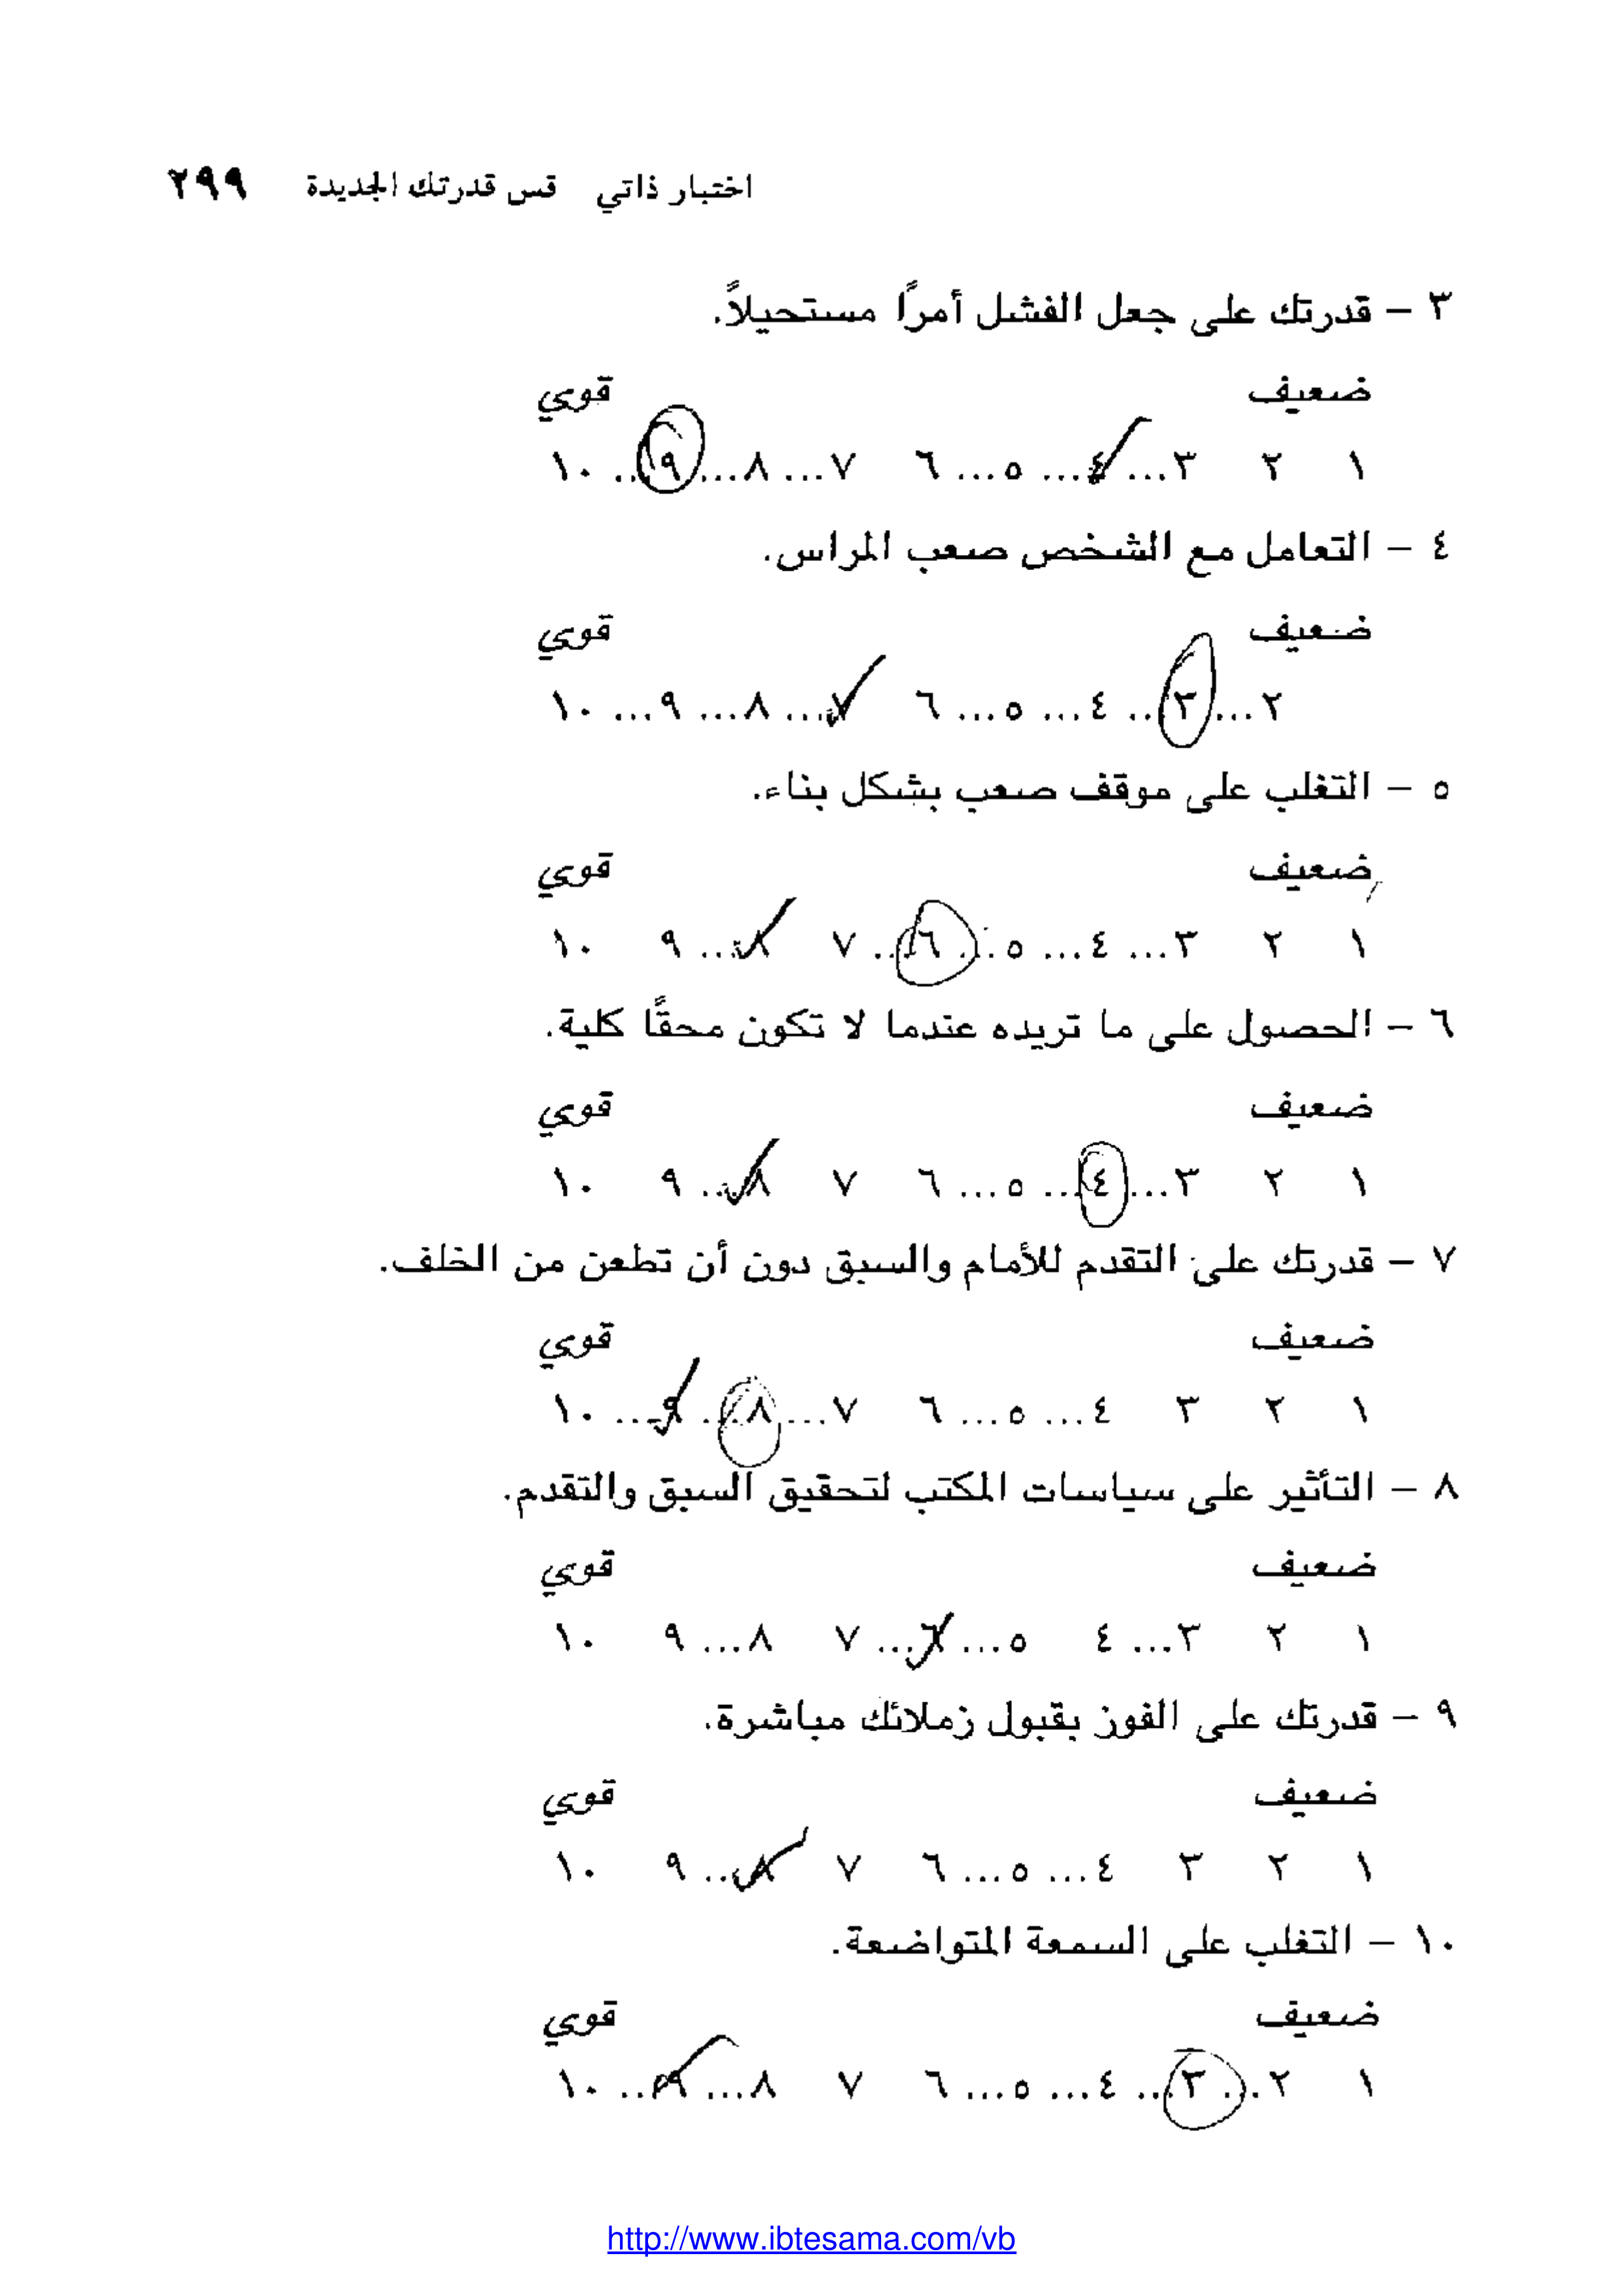 اختبار ذاتي قس قدرتك الجديدة ٢٩٩
٣ – قدرتك على جعل الفشل أمرًا مستحيلاً.
ضعيف قوي
١ ٢ ٣...٤...٥...٦ ٧...٨...٩...١٠
٤ – التعامل مع الشخص صعب المراس.
ضعيف قوي
٢...٣...٤...٥...٦ ٧...٨...٩...١٠
٥ – التغلب على موقف صعب بشكل بناء.
ضعيف قوي
١ ٢ ٣...٤...٥...٦...٧ ٨...٩ ١٠
٦ – الحصول على ما تريده عندما لا تكون محقًا كلية.
ضعيف قوي
١ ٢ ٣...٤...٥...٦ ٧ ٨...٩ ١٠
٧ – قدرتك على التقدم للأمام والسبق دون أن تطعن من الخلف.
ضعيف قوي
١ ٢ ٣ ٤...٥...٦ ٧...٨...٩...١٠
٨ – التأثير على سياسات المكتب لتحقيق السبق والتقدم.
ضعيف قوي
١ ٢ ٣...٤ ٥...٦...٧ ٨...٩ ١٠
٩ – قدرتك على الفوز بقبول زملائك مباشرة.
ضعيف قوي
١ ٢ ٣ ٤...٥...٦ ٧ ٨...٩ ١٠
١٠ – التغلب على السمعة المتواضعة.
ضعيف قوي
١ ٢...٣...٤...٥...٦ ٧ ٨...٩...١٠
http://www.ibtesama.com/vb